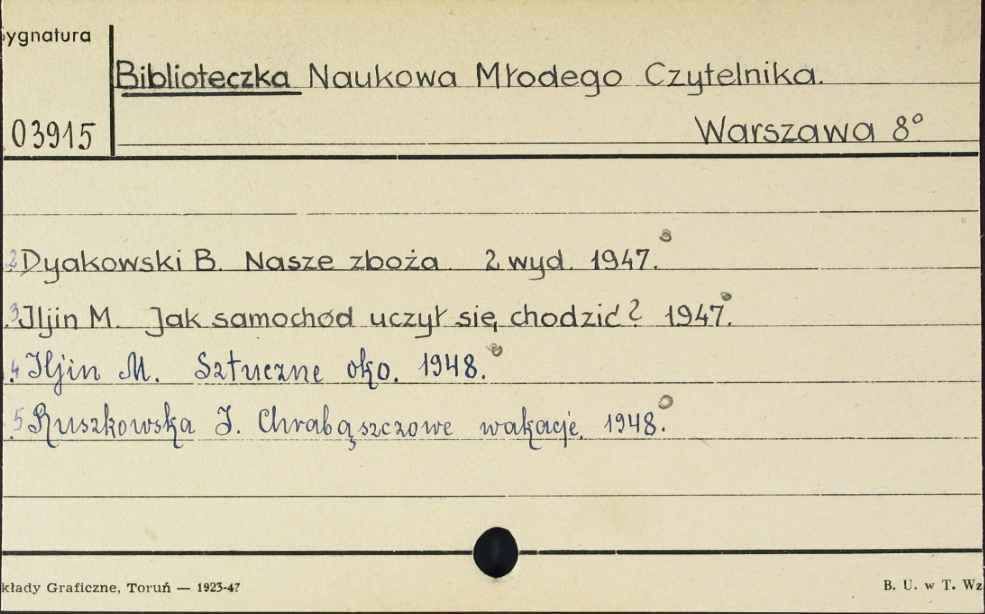 Sygnatura
Biblioteczka Naukowa Młodego Czytelnika.
03915
Warszawa 8°
2 Dyakowski B. Nasze zboża. 2 wyd. 1947.
3 Iljin M. Jak samochód uczył się chodzić? 1947.
4 Iljin M. Sztuczne oko. 1948.
5 Ruszkowska J. Chrabąszczowe wakacje. 1948.
kłady Graficzne, Toruń — 1923-47
B. U. w T. Wz